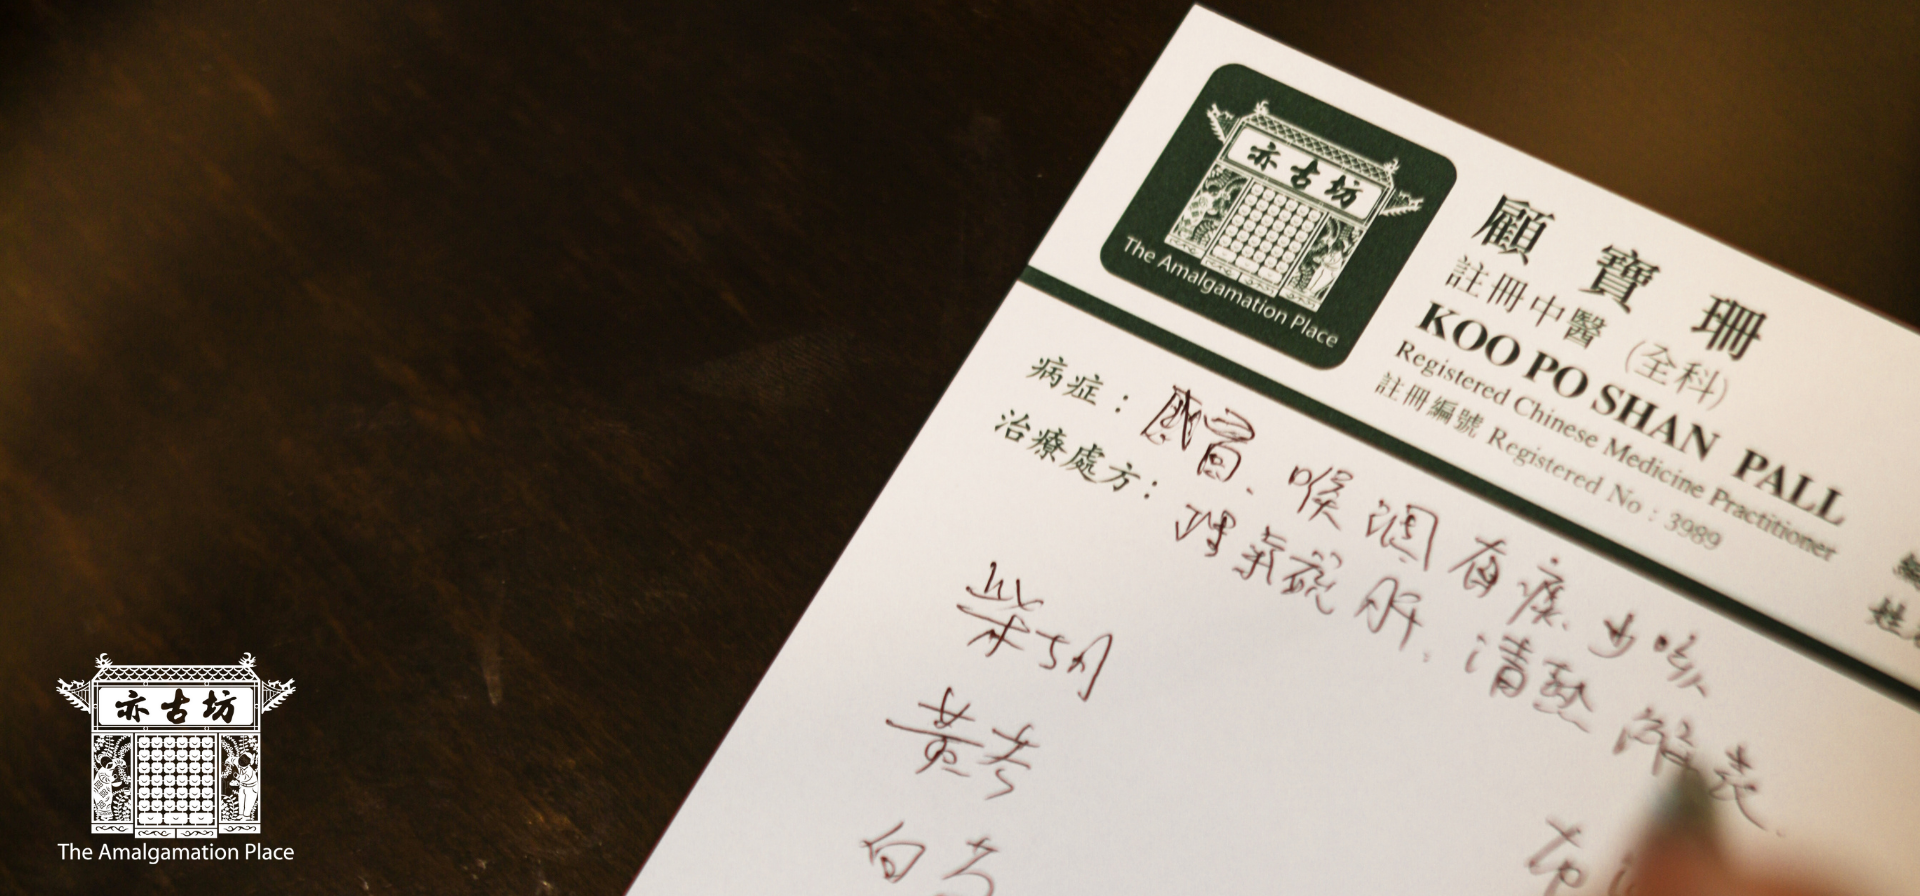 亦古坊
The Amalgamation Place
顧寶珊
註冊中醫 (全科)
KOO PO SHAN PALL
Registered Chinese Medicine Practitioner
註冊編號 Registered No : 3989
病症： 感冒、喉涸有痰少咳
治療處方： 理氣疏肝、清熱解表、
柴胡
黃芩
白芍
亦古坊
The Amalgamation Place